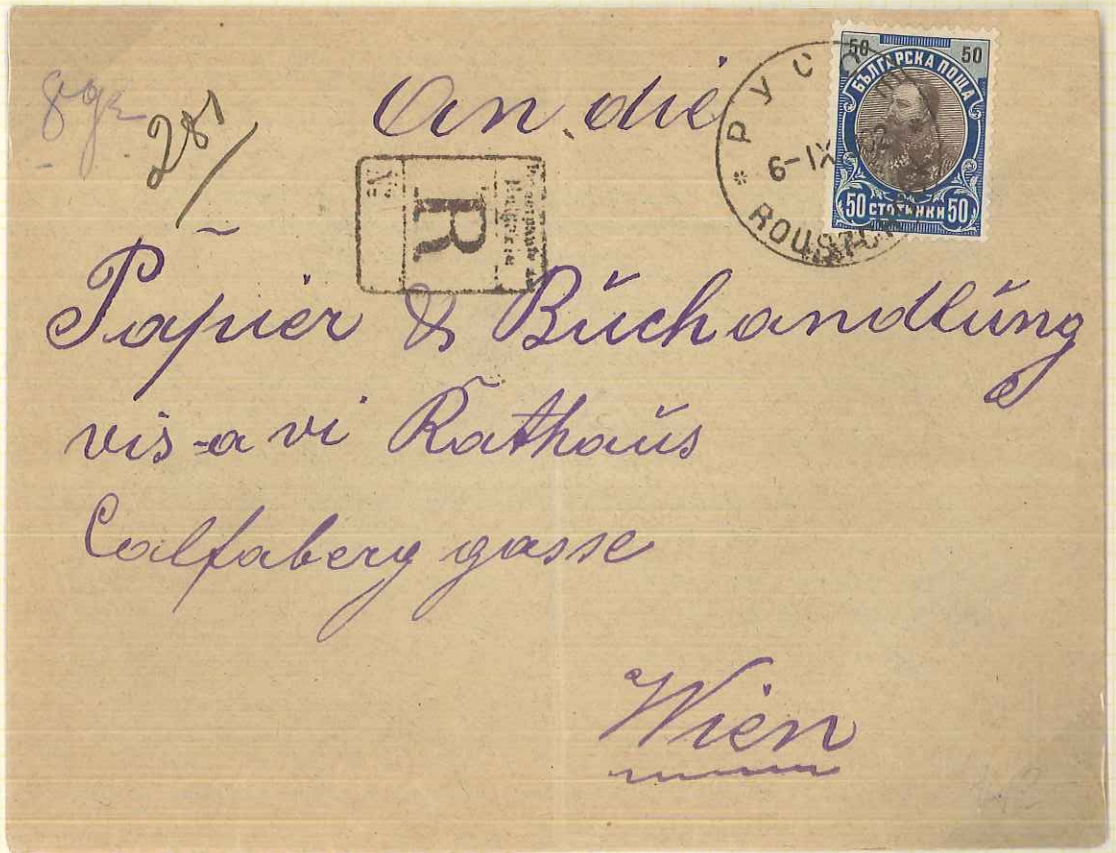 8gr
281
An die
R
№
РУСЕ
6-IX
ROUSTCHOUK
50 50
БЪЛГАРСКА ПОЩА
50 СТОТИНКИ 50
Papier & Buchandlung
vis-a vi Rathaus
Calfaberg gasse
Wien